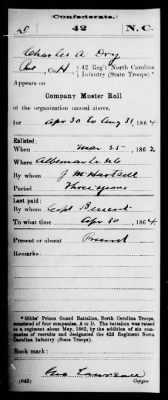 Confederate.
D 42 N.C.
Charles A Dry
Pvt, Co. H, 42 Reg't North Carolina
Infantry (State Troops).*
Appears on
Company Muster Roll
of the organization named above,
for Apr 30 to Aug 31, 1864
Enlisted:
When Mar 25, 1862
Where Albemarle NC
By whom J McHartsell
Period Three years
Last paid:
By whom Capt
To what time Apr 30, 1864
Present or absent Present
Remarks:
*Gibbs' Prison Guard Battalion, North Carolina Troops,
consisted of four companies, A to D. The battalion was raised
to a regiment about May, 1862, by the addition of six compa-
nies of recruits and designated the 42d Regiment North
Carolina Infantry (State Troops).
Book mark:
(642) Geo Lawrence
Copyist.